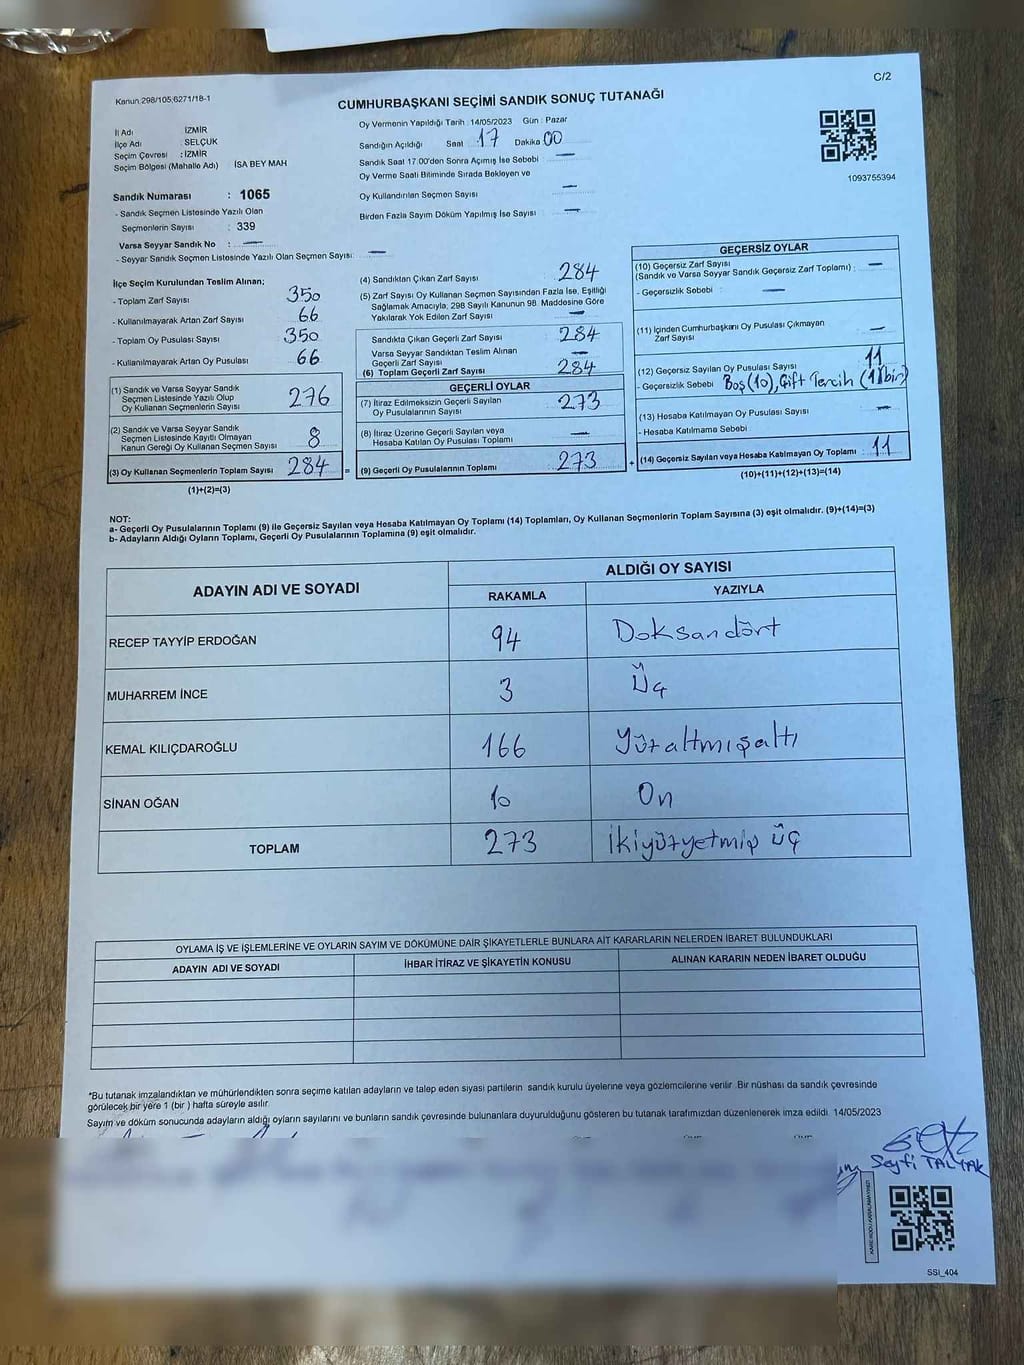 C/2
Kanun:298/105;6271/18-1
CUMHURBAŞKANI SEÇİMİ SANDIK SONUÇ TUTANAĞI
İl Adı : İZMİR
İlçe Adı : SELÇUK
Seçim Çevresi : İZMİR
Seçim Bölgesi (Mahalle Adı) İSA BEY MAH
Sandık Numarası : 1065
- Sandık Seçmen Listesinde Yazılı Olan
Seçmenlerin Sayısı : 339
Varsa Seyyar Sandık No : —
- Seyyar Sandık Seçmen Listesinde Yazılı Olan Seçmen Sayısı: —
Oy Vermenin Yapıldığı Tarih : 14/05/2023 Gün : Pazar
Sandığın Açıldığı Saat : 17 Dakika 00
Sandık Saat 17.00'den Sonra Açılmış İse Sebebi : —
Oy Verme Saati Bitiminde Sırada Bekleyen ve
Oy Kullandırılan Seçmen Sayısı —
Birden Fazla Sayım Döküm Yapılmış İse Sayısı : —
1093755394
İlçe Seçim Kurulundan Teslim Alınan;
- Toplam Zarf Sayısı 350
- Kullanılmayarak Artan Zarf Sayısı : 66
- Toplam Oy Pusulası Sayısı : 350
- Kullanılmayarak Artan Oy Pusulası 66
(1) Sandık ve Varsa Seyyar Sandık
Seçmen Listesinde Yazılı Olup
Oy Kullanan Seçmenlerin Sayısı 276
(2) Sandık ve Varsa Seyyar Sandık
Seçmen Listesinde Kayıtlı Olmayan
Kanun Gereği Oy Kullanan Seçmen Sayısı 8
(3) Oy Kullanan Seçmenlerin Toplam Sayısı 284 =
(1)+(2)=(3)
(4) Sandıktan Çıkan Zarf Sayısı 284
(5) Zarf Sayısı Oy Kullanan Seçmen Sayısından Fazla İse, Eşitliği
Sağlamak Amacıyla, 298 Sayılı Kanunun 98. Maddesine Göre
Yakılarak Yok Edilen Zarf Sayısı : —
Sandıkta Çıkan Geçerli Zarf Sayısı 284
Varsa Seyyar Sandıktan Teslim Alınan
Geçerli Zarf Sayısı —
(6) Toplam Geçerli Zarf Sayısı 284
GEÇERLİ OYLAR
(7) İtiraz Edilmeksizin Geçerli Sayılan
Oy Pusulalarının Sayısı : 273
(8) İtiraz Üzerine Geçerli Sayılan veya
Hesaba Katılan Oy Pusulası Toplamı —
(9) Geçerli Oy Pusulalarının Toplamı : 273 +
GEÇERSİZ OYLAR
(10) Geçersiz Zarf Sayısı
(Sandık ve Varsa Seyyar Sandık Geçersiz Zarf Toplamı) : —
- Geçersizlik Sebebi : —
(11) İçinden Cumhurbaşkanı Oy Pusulası Çıkmayan
Zarf Sayısı —
(12) Geçersiz Sayılan Oy Pusulası Sayısı 11
- Geçersizlik Sebebi Boş (10), Çift Tercih (1)(bir)
(13) Hesaba Katılmayan Oy Pusulası Sayısı —
- Hesaba Katılmama Sebebi
(14) Geçersiz Sayılan veya Hesaba Katılmayan Oy Toplamı : 11
(10)+(11)+(12)+(13)=(14)
NOT:
a- Geçerli Oy Pusulalarının Toplamı (9) ile Geçersiz Sayılan veya Hesaba Katılmayan Oy Toplamı (14) Toplamları, Oy Kullanan Seçmenlerin Toplam Sayısına (3) eşit olmalıdır. (9)+(14)=(3)
b- Adayların Aldığı Oyların Toplamı, Geçerli Oy Pusulalarının Toplamına (9) eşit olmalıdır.
ADAYIN ADI VE SOYADI
ALDIĞI OY SAYISI
RAKAMLA YAZIYLA
RECEP TAYYİP ERDOĞAN 94 Doksandört
MUHARREM İNCE 3 Üç
KEMAL KILIÇDAROĞLU 166 Yüzaltmışaltı
SİNAN OĞAN 10 On
TOPLAM 273 İkiyüzyetmiş üç
OYLAMA İŞ VE İŞLEMLERİNE VE OYLARIN SAYIM VE DÖKÜMÜNE DAİR ŞİKAYETLERLE BUNLARA AİT KARARLARIN NELERDEN İBARET BULUNDUKLARI
ADAYIN ADI VE SOYADI İHBAR İTİRAZ VE ŞİKAYETİN KONUSU ALINAN KARARIN NEDEN İBARET OLDUĞU
*Bu tutanak imzalandıktan ve mühürlendikten sonra seçime katılan adayların ve talep eden siyasi partilerin sandık kurulu üyelerine veya gözlemcilerine verilir. Bir nüshası da sandık çevresinde
görülecek bir yere 1 (bir ) hafta süreyle asılır.
Sayım ve döküm sonucunda adayların aldığı oyların sayılarını ve bunların sandık çevresinde bulunanlara duyurulduğunu gösteren bu tutanak tarafımızdan düzenlenerek imza edildi. 14/05/2023
Seyfi TALYAK
SSİ_404